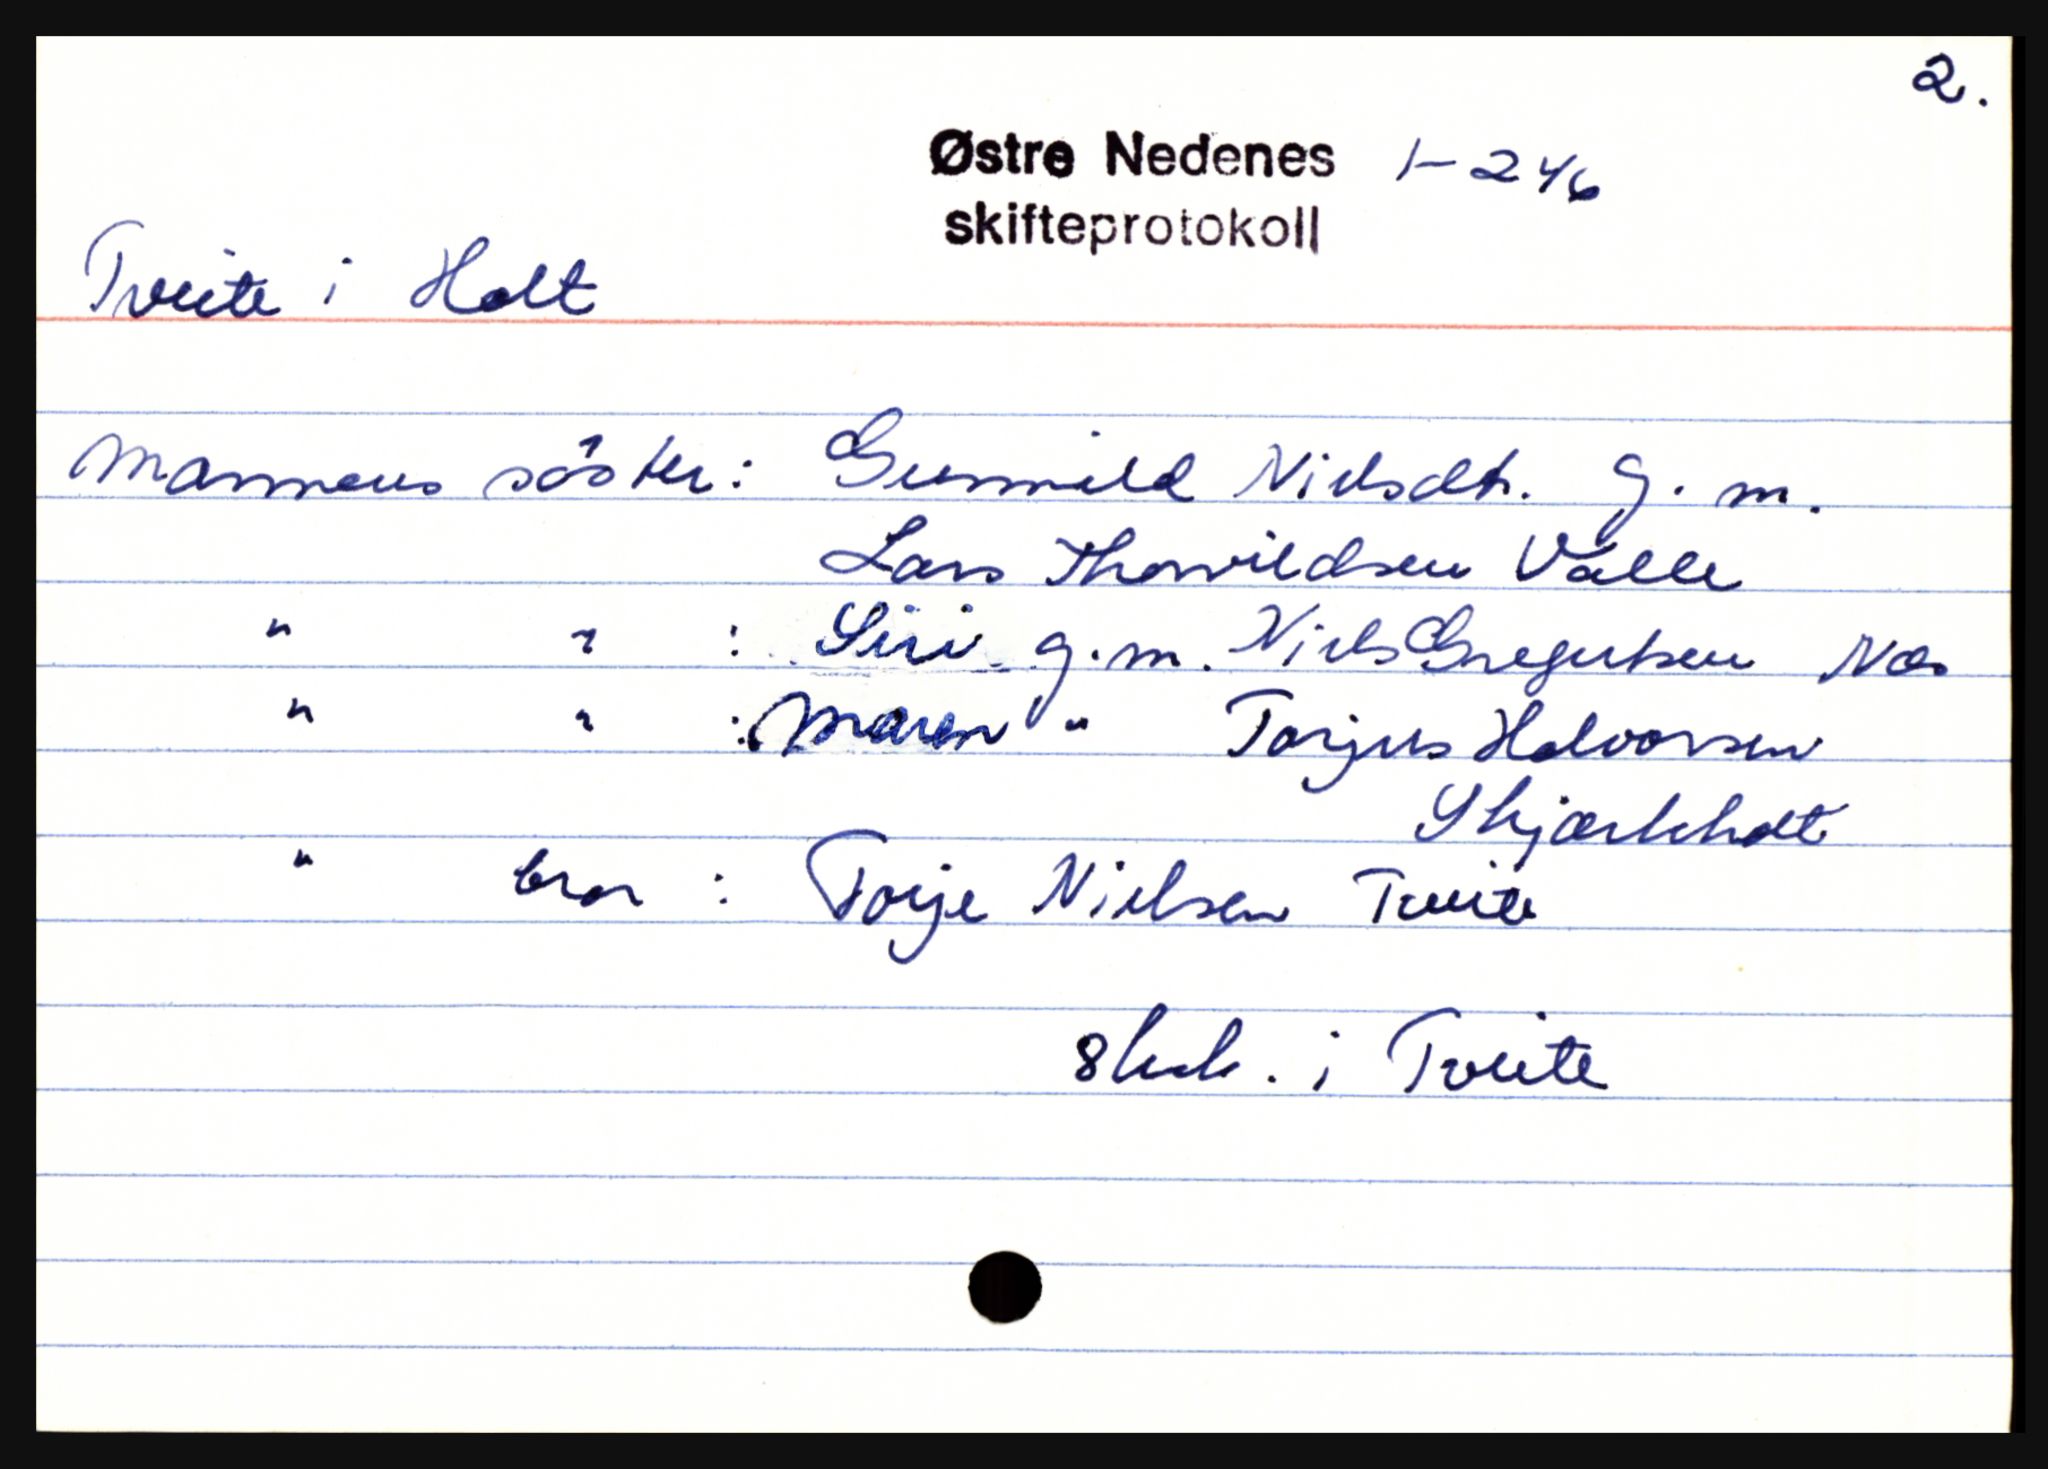 2.
Østre Nedenes 1-246
skifteprotokoll
Tveite i Holt
Mannens söster: Gunnild Nielsdtr. g.m.
Lars Thorvildsen Valle
" " : Siri g.m. Niels Gregertsen Næs
" " : Maren " Torjus Halvorsen
Skjærkholt
" bror : Torje Nielsen Tveite
8 huh. i Tveite